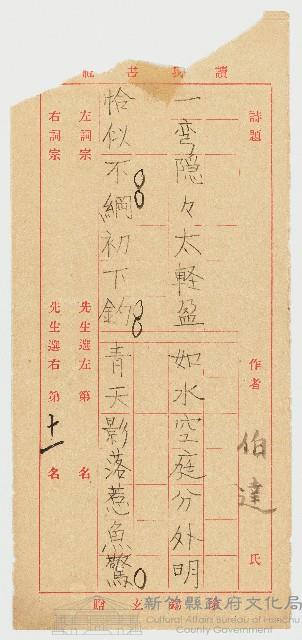 讀我書
詩題 作者 伯達 氏
一弯隠々太軽盈如水空庭分外明
恰似不綱初下釣青天影落惹魚驚
左詞宗 先生選左第 名
右詞宗 先生選右第十一名
玄贈
新竹縣政府文化局
Cultural Affairs Bureau of Hsinchu
County Government